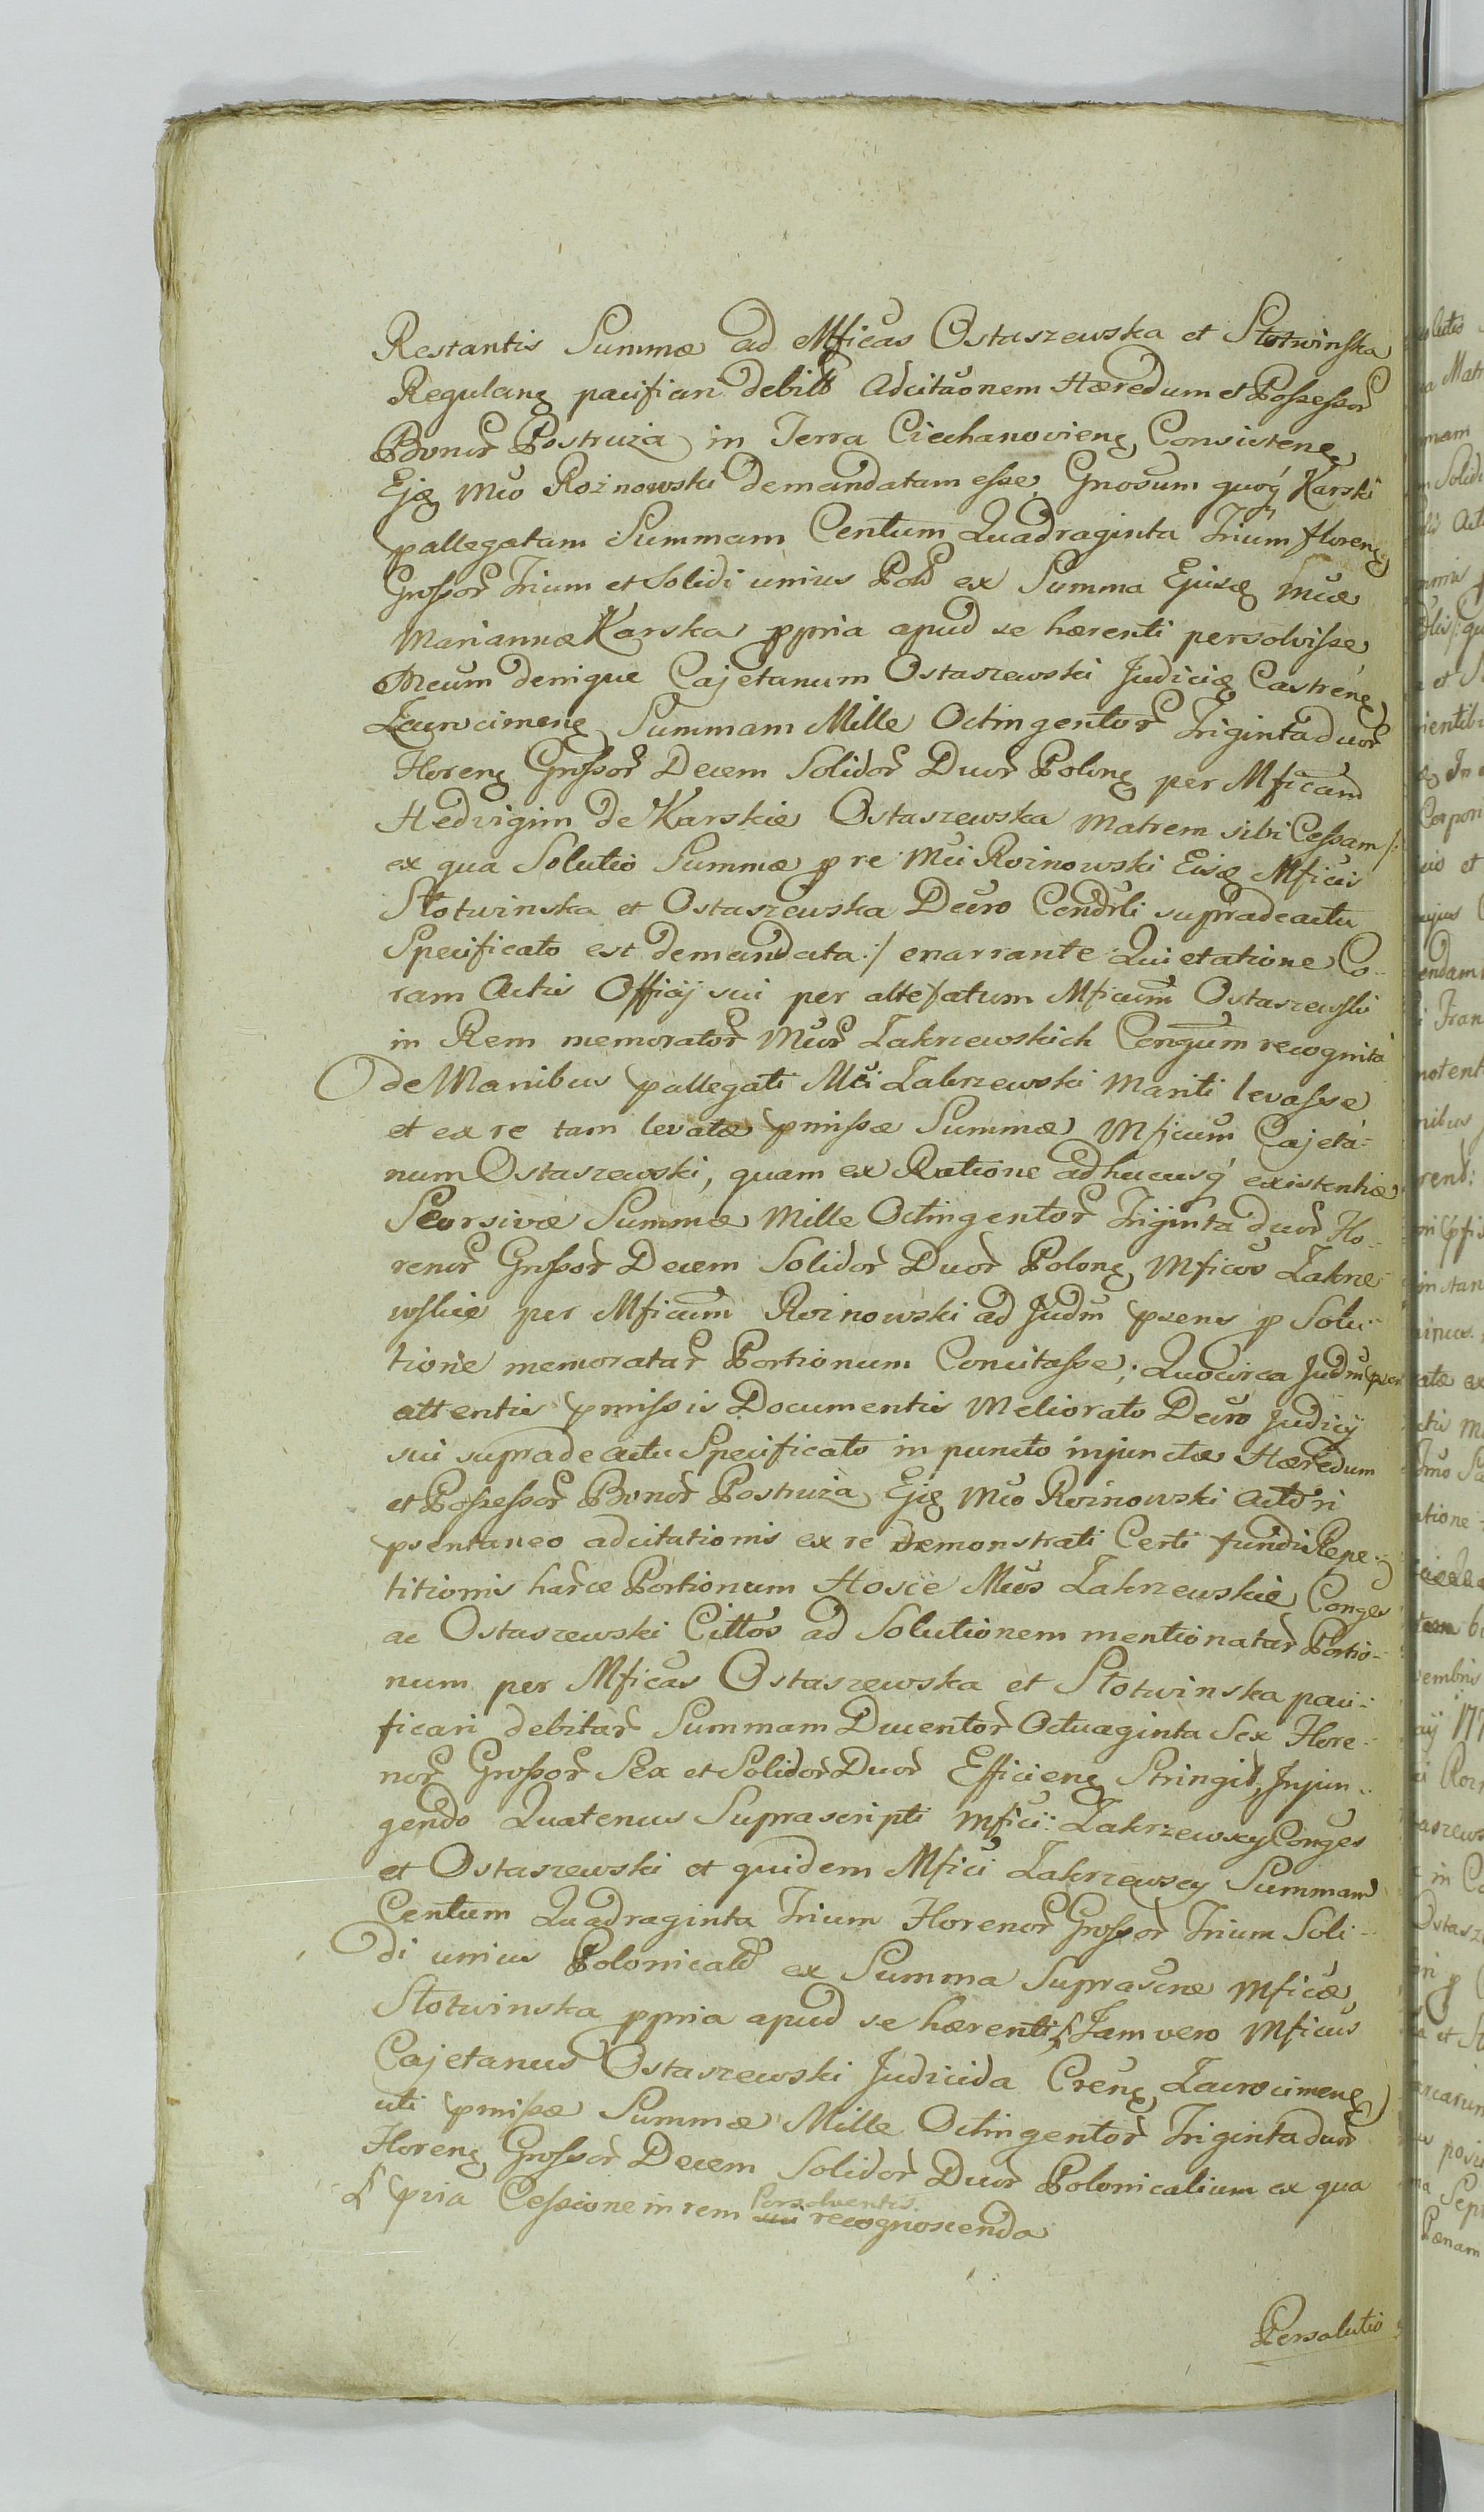 Restantis Summæ ad Mficas Ostaszewska et Słotwinska
Regulang pacificari debilr Adcitaonem Hæredum et Poſseſsor
Bonor Postruża in Terra Ciechanovieng Consisteng
Ejg Mco Rożnowski demandatam eſse, Gnosum quoq Karski
pallegatam Summam Centum Quadraginta Trium floreng
Groſsor Trium et Solidi unius Pol ex Summa Ejusg Mcæ
Mariannæ Karska ppria apud se hærenti persolviſse,
Mcum denique Cajetanum Ostaszewski Judicig Castreng
Zawscimeng Summam Mille Octingentor Triginta duor
Floreng Groſsor Decem Solidor Duor Polong per Mficam
Hedvigim de Karskie Ostaszewska Matrem sibi Ceſsam /:
ex qua Solutio Summæ p re Mci Roznowski Eisg Mficis
Słotwinska et Ostaszewska Decro Cendrli supradeactu
Specificato est demandata :/ enarrante Quietatione Co-
ram Actis Officij sui per attefatum Mficum Ostaszewski
in Rem memorator Mcor Zakrzewskich Congum recognita
de Manibus pallegati Mci Zakrzewski Mariti levaſse
et ex re tam levatæ pmiſsæ Summæ Mficum Cajeta-
num Ostaszewski, quam ex Ratione adhucusq existentiæ
Seorsivæ Summæ Mille Octingentor Triginta duor Flo-
renor Groſsor Decem Solidor Duor Polong Mficos Zakrze-
wskie per Mficum Roznowski ad Judm psens p Solu-
tione memoratar Portionum Concitaſse; Quocirca Judm psens
attentis pmiſsis Documentis Meliorato Decro Judicij
sui supradeactu Specificato in puncto injunctæ Hæredum
et Poſseſsor Bonor Postruża Ejg Mco Roznowski Actori
psentaneo adcitationis ex re demonstrati Certi fundi Repe-
titionis harce Portionum Hosce Mcos Zakrzewskie Conges
ac Ostaszewski Cittos ad Solutionem mentionatar Portio-
num per Mficas Ostaszewska et Słotwinska paci-
ficari debitar Summam Ducentor Octuaginta Sex Flore-
nor Groſsor Sex et Solidor Duor Efficieng Stringit, Injun-
gendo Quatenus Suprascripti Mfici: Zakrzewscy Conges
et Ostaszewski et quidem Mfici Zakrzewscy Summam
Centum Quadraginta Trium Florenor Groſsor Trium Soli-
di unius Polonical ex Summa Suprascræ Mficæ
Słotwinska ppria apud se hærenti, Jam vero Mficus
Cajetanus Ostaszewski Judicida Creng Zawscimeng
uti pmiſsæ Summæ Mille Octingentor Triginta duor
Floreng Groſsor Decem Solidor Duor Polonicalium ex qua
pvia Ceſsione in rem sui Persolventis recognoscenda
Persolutio